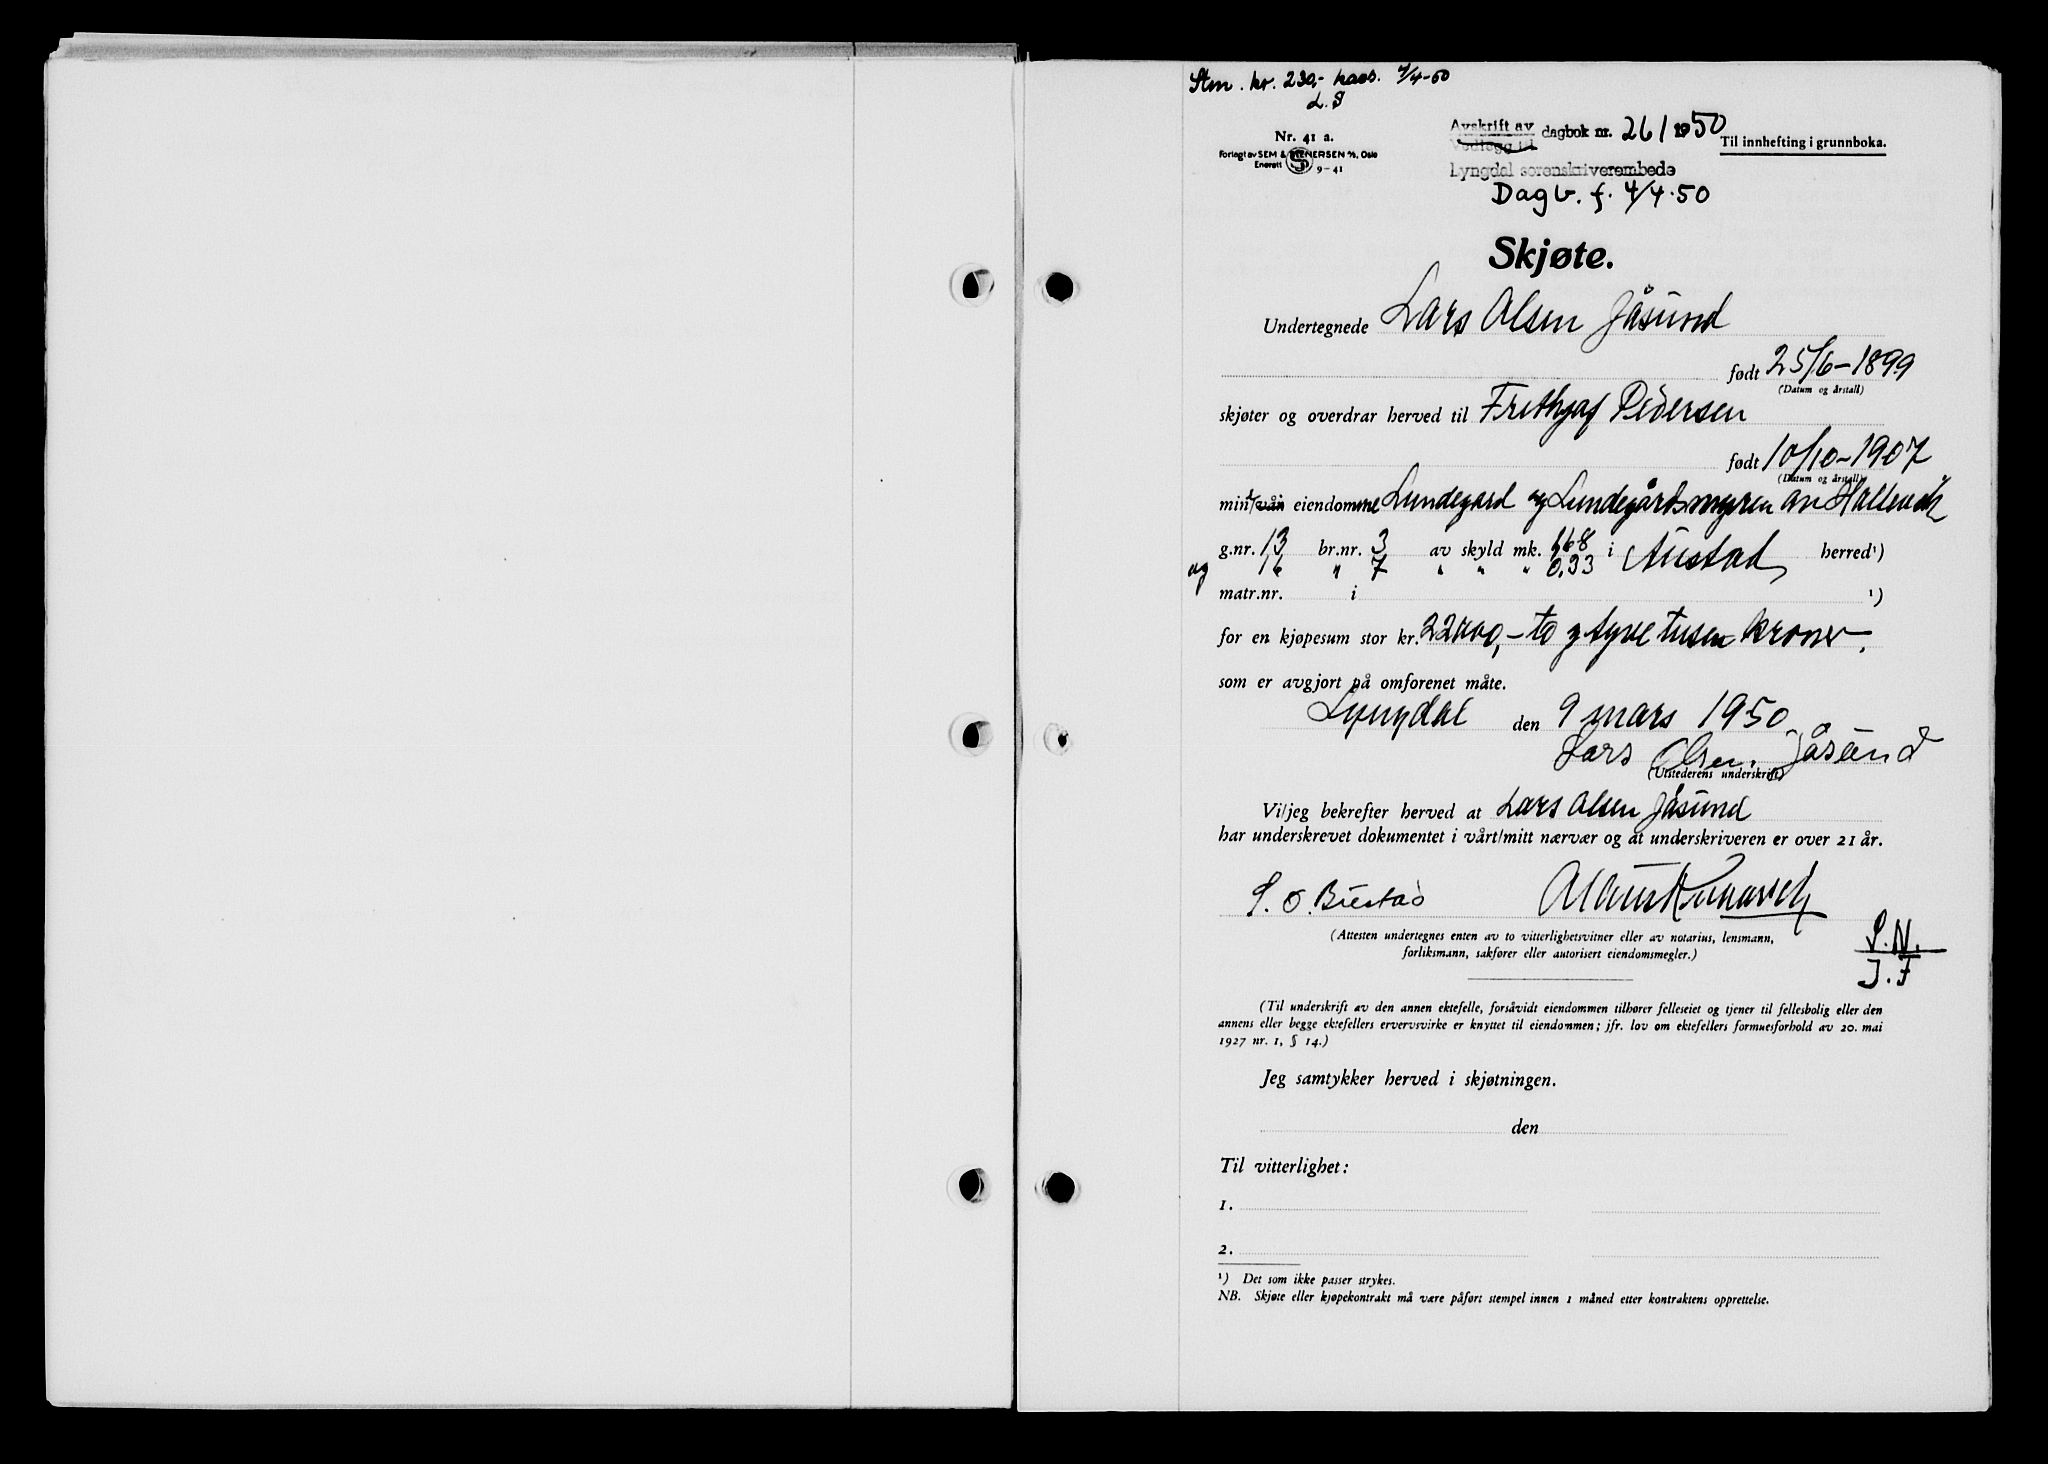 Stm. kr. 230,- kass. 4/4-50
L.S
Nr. 41 a.
Forlagt av SEM & STENERSEN A/S, Oslo
Enerett 9-41
Avskrift av dagbok nr. 261 1950
Vedlegg til
Til innhefting i grunnboka.
Lyngdal sorenskriverembede
Dagb. f. 4/4.50
Skjøte.
Undertegnede Lars Olsen Jåsund
født 25/6-1899
(Datum og årstall)
skjøter og overdrar herved til Frithjof Pedersen
født 10/10-1907
(Datum og årstall)
min/vår eiendomme Lundegard og Lundegårdsmyren av Hallevik
g.nr. 13 br.nr. 3 av skyld mk. 1,68 i Austad herred¹)
og 16 " 7 " " " 0,33
matr.nr. i ¹)
for en kjøpesum stor kr. 22000,- to og tyve tusen kroner.
som er avgjort på omforenet måte.
Lyngdal den 9 mars 1950
Lars Olsen Jåsund
(Utstederens underskrift)
Vi/jeg bekrefter herved at Lars Olsen Jåsund
har underskrevet dokumentet i vårt/mitt nærvær og at underskriveren er over 21 år.
S. O. Briestad
(Attesten undertegnes enten av to vitterlighetsvitner eller av notarius, lensmann,
forliksmann, sakfører eller autorisert eiendomsmegler.)
S.N.
J.F
(Til underskrift av den annen ektefelle, forsåvidt eiendommen tilhører felleseiet og tjener til fellesbolig eller den
annens eller begge ektefellers ervervsvirke er knyttet til eiendommen; jfr. lov om ektefellers formuesforhold av 20. mai
1927 nr. 1, § 14.)
Jeg samtykker herved i skjøtningen.
den
Til vitterlighet:
1.
2.
¹) Det som ikke passer strykes.
NB. Skjøte eller kjøpekontrakt må være påført stempel innen 1 måned etter kontraktens opprettelse.